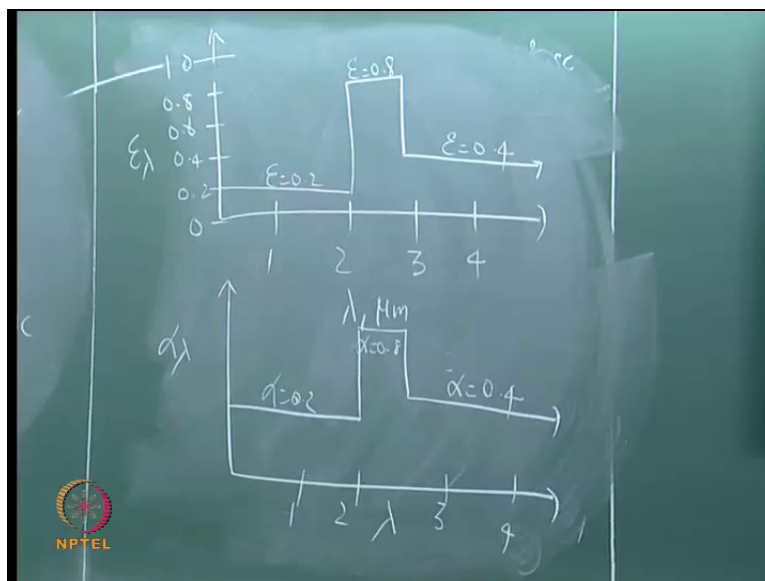 1.0
0.8
0.6
0.4
0.2
0
ελ
ε=0.2
ε=0.8
ε=0.4
1 2 3 4
λ, μm
αλ
α=0.2
α=0.8
α=0.4
1 2 λ 3 4
c
NPTEL